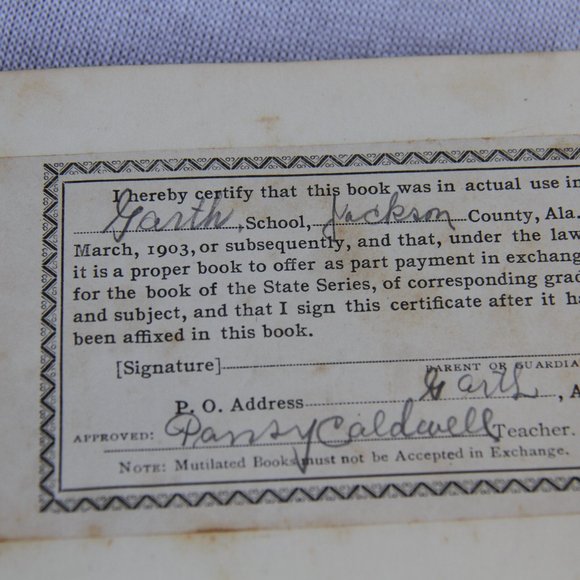 I hereby certify that this book was in actual use in
Garth School, Jackson County, Ala.
March, 1903, or subsequently, and that, under the law
it is a proper book to offer as part payment in exchang
for the book of the State Series, of corresponding grad
and subject, and that I sign this certificate after it ha
been affixed in this book.
[Signature]
PARENT OR GUARDIA
P. O. Address Garth, A
APPROVED: Pansy Caldwell Teacher.
NOTE: Mutilated Books must not be Accepted in Exchange.